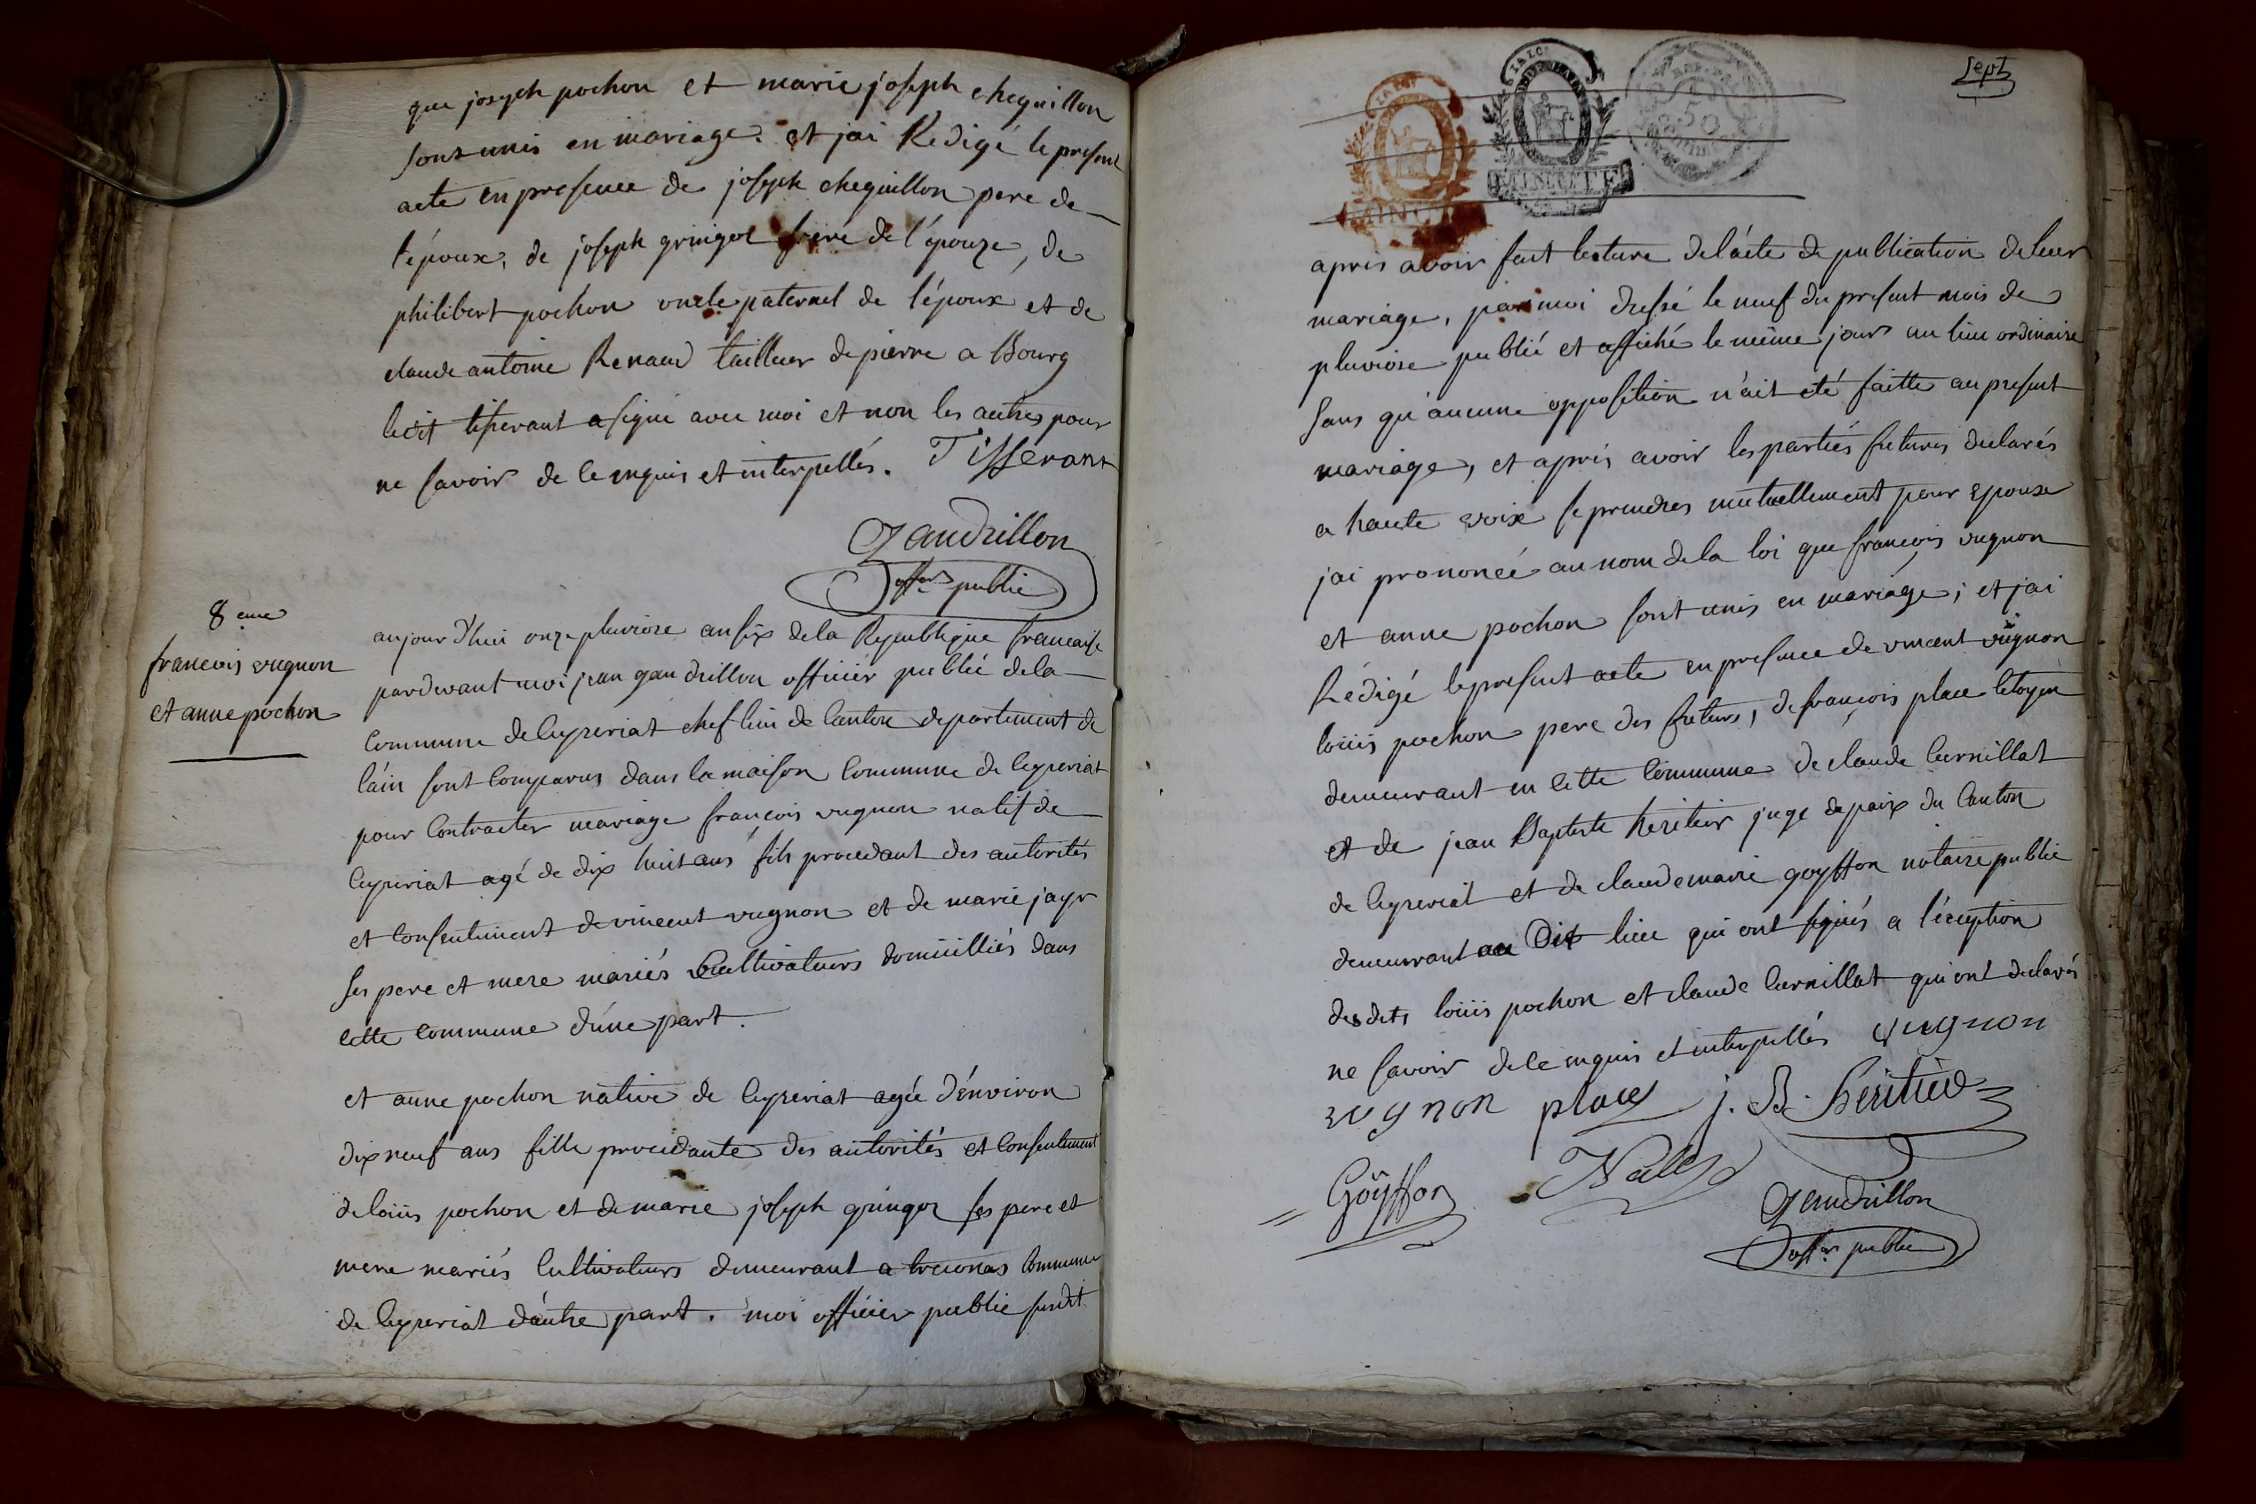 que joseph pochon et marie joseph cheguillon
sont unis en mariage. et jai Redigé le present
acte en presence de joseph cheguillon pere de
l'époux, de joseph gringoz frere de l'epouze, de
philibert pochon oncle paternel de l'époux et de
claude antoine Renaud tailleur de pierre a Bourg
ledit tisserant a signé avec moi et non les autres pour
ne savoir de ce enquis et interpellés. Tisserant
Gaudrillon
offer public
8eme
francois vugnon
et anne pochon
aujourd'hui onze pluviose an six de la Republique francaise
pardevant moi jean gaudrillon officier public de la
commune de Ceyzeriat chef lieu de Canton departement de
l'ain sont Comparus dans la maison Commune de Ceyzeriat
pour Contracter mariage françois vugnon natif de
Ceyzeriat agé de dix huit ans fils procedant des autorités
et consentement de vincent vugnon et de marie jayr
ses pere et mere mariés Cultivateurs domiciliés dans
cette commune d'une part.
et anne pochon native de Ceyzeriat agée d'environ
dix neuf ans fille procedante des autorités et Consentement
de loüis pochon et de marie joseph gringoz ses pere et
mere mariés Cultivateurs demeurant a treconas Commune
de Ceyzeriat d'autre part. moi officier public susdit
sept
LA LOI
MINUTE
LA LOI
MINUTE
50
apres avoir fait lecture de l'acte de publication de leur
mariage, par moi dressé le neuf du present mois de
pluviose publié et affiché le même jour au lieu ordinaire
sans qu'aucune opposition n'ait eté faitte au present
mariage, et après avoir les parties futures declarés
a haute voix se prendres mutuellement pour epoux
jai prononcé au nom de la loi que françois vugnon
et anne pochon sont unis en mariage; et jai
Rédigé le present acte en presence de vincent vugnon
loüis pochon pere des futurs, de françois place Citoyen
demeurant en cette Commune de claude Curnillat
et de jean Baptiste heritier juge de paix du Canton
de Ceyzeriat et de claude marie goyffon notaire public
demeurant au Dit lieu qui ont signés a l'éception
desdits loüis pochon et claude Curnillat qui ont declarés
ne savoir de ce enquis et interpellés vugnon
vugnon place j. B. heritier
Goÿffon
Gaudrillon
offer public